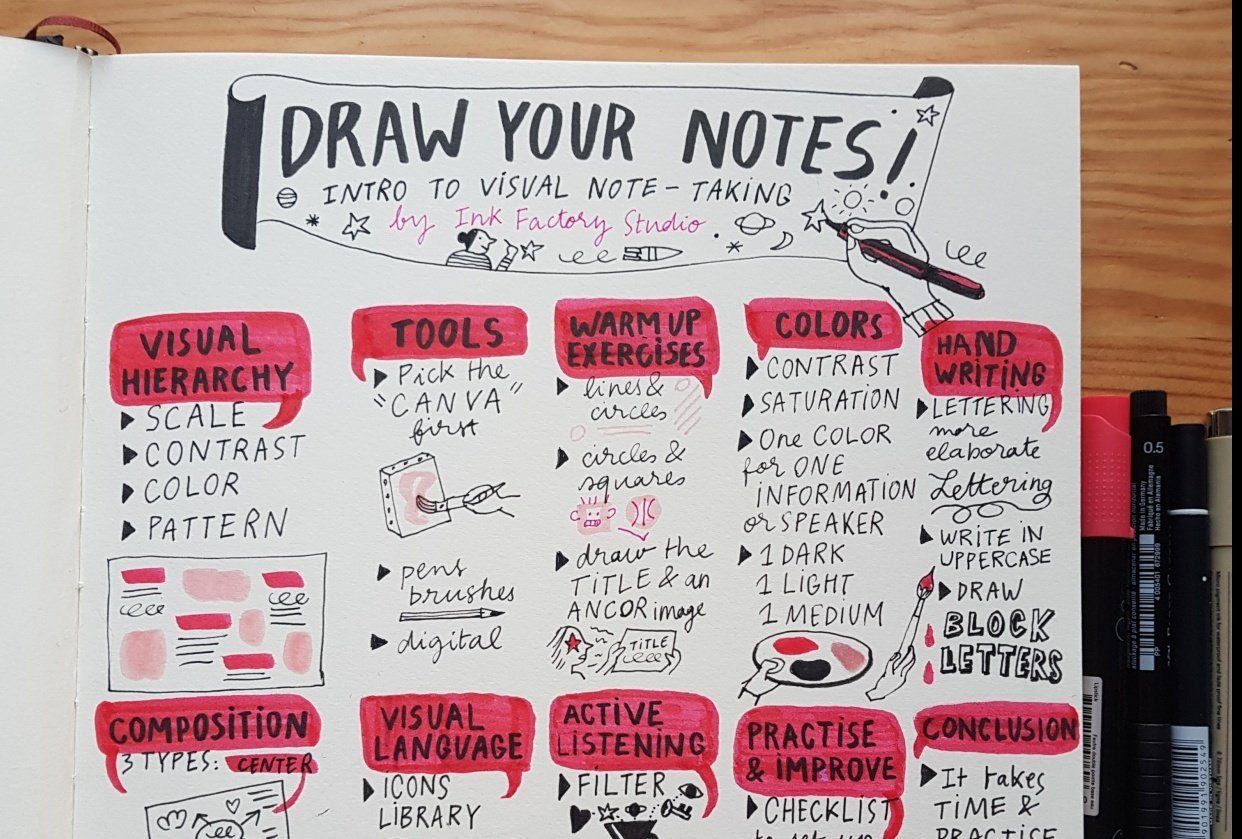 DRAW YOUR NOTES!
INTRO TO VISUAL NOTE-TAKING
by Ink Factory Studio
VISUAL
HIERARCHY
SCALE
CONTRAST
COLOR
PATTERN
TOOLS
Pick the
"CANVA"
first
pens
brushes
digital
WARM UP
EXERCISES
lines &
circles
circles &
squares
draw the
TITLE & an
ANCOR image
TITLE
COLORS
CONTRAST
SATURATION
One COLOR
for ONE
INFORMATION
or SPEAKER
1 DARK
1 LIGHT
1 MEDIUM
HAND
WRITING
LETTERING
more
elaborate
Lettering
WRITE IN
UPPERCASE
DRAW
BLOCK
LETTERS
COMPOSITION
3 TYPES: CENTER
VISUAL
LANGUAGE
ICONS
LIBRARY
ACTIVE
LISTENING
FILTER
PRACTISE
& IMPROVE
CHECKLIST
CONCLUSION
It takes
TIME &
PRACTISE
0.5
Made in Germany
Fabriqué en Allemagne
Hecho en Alemania
4 005401 672999